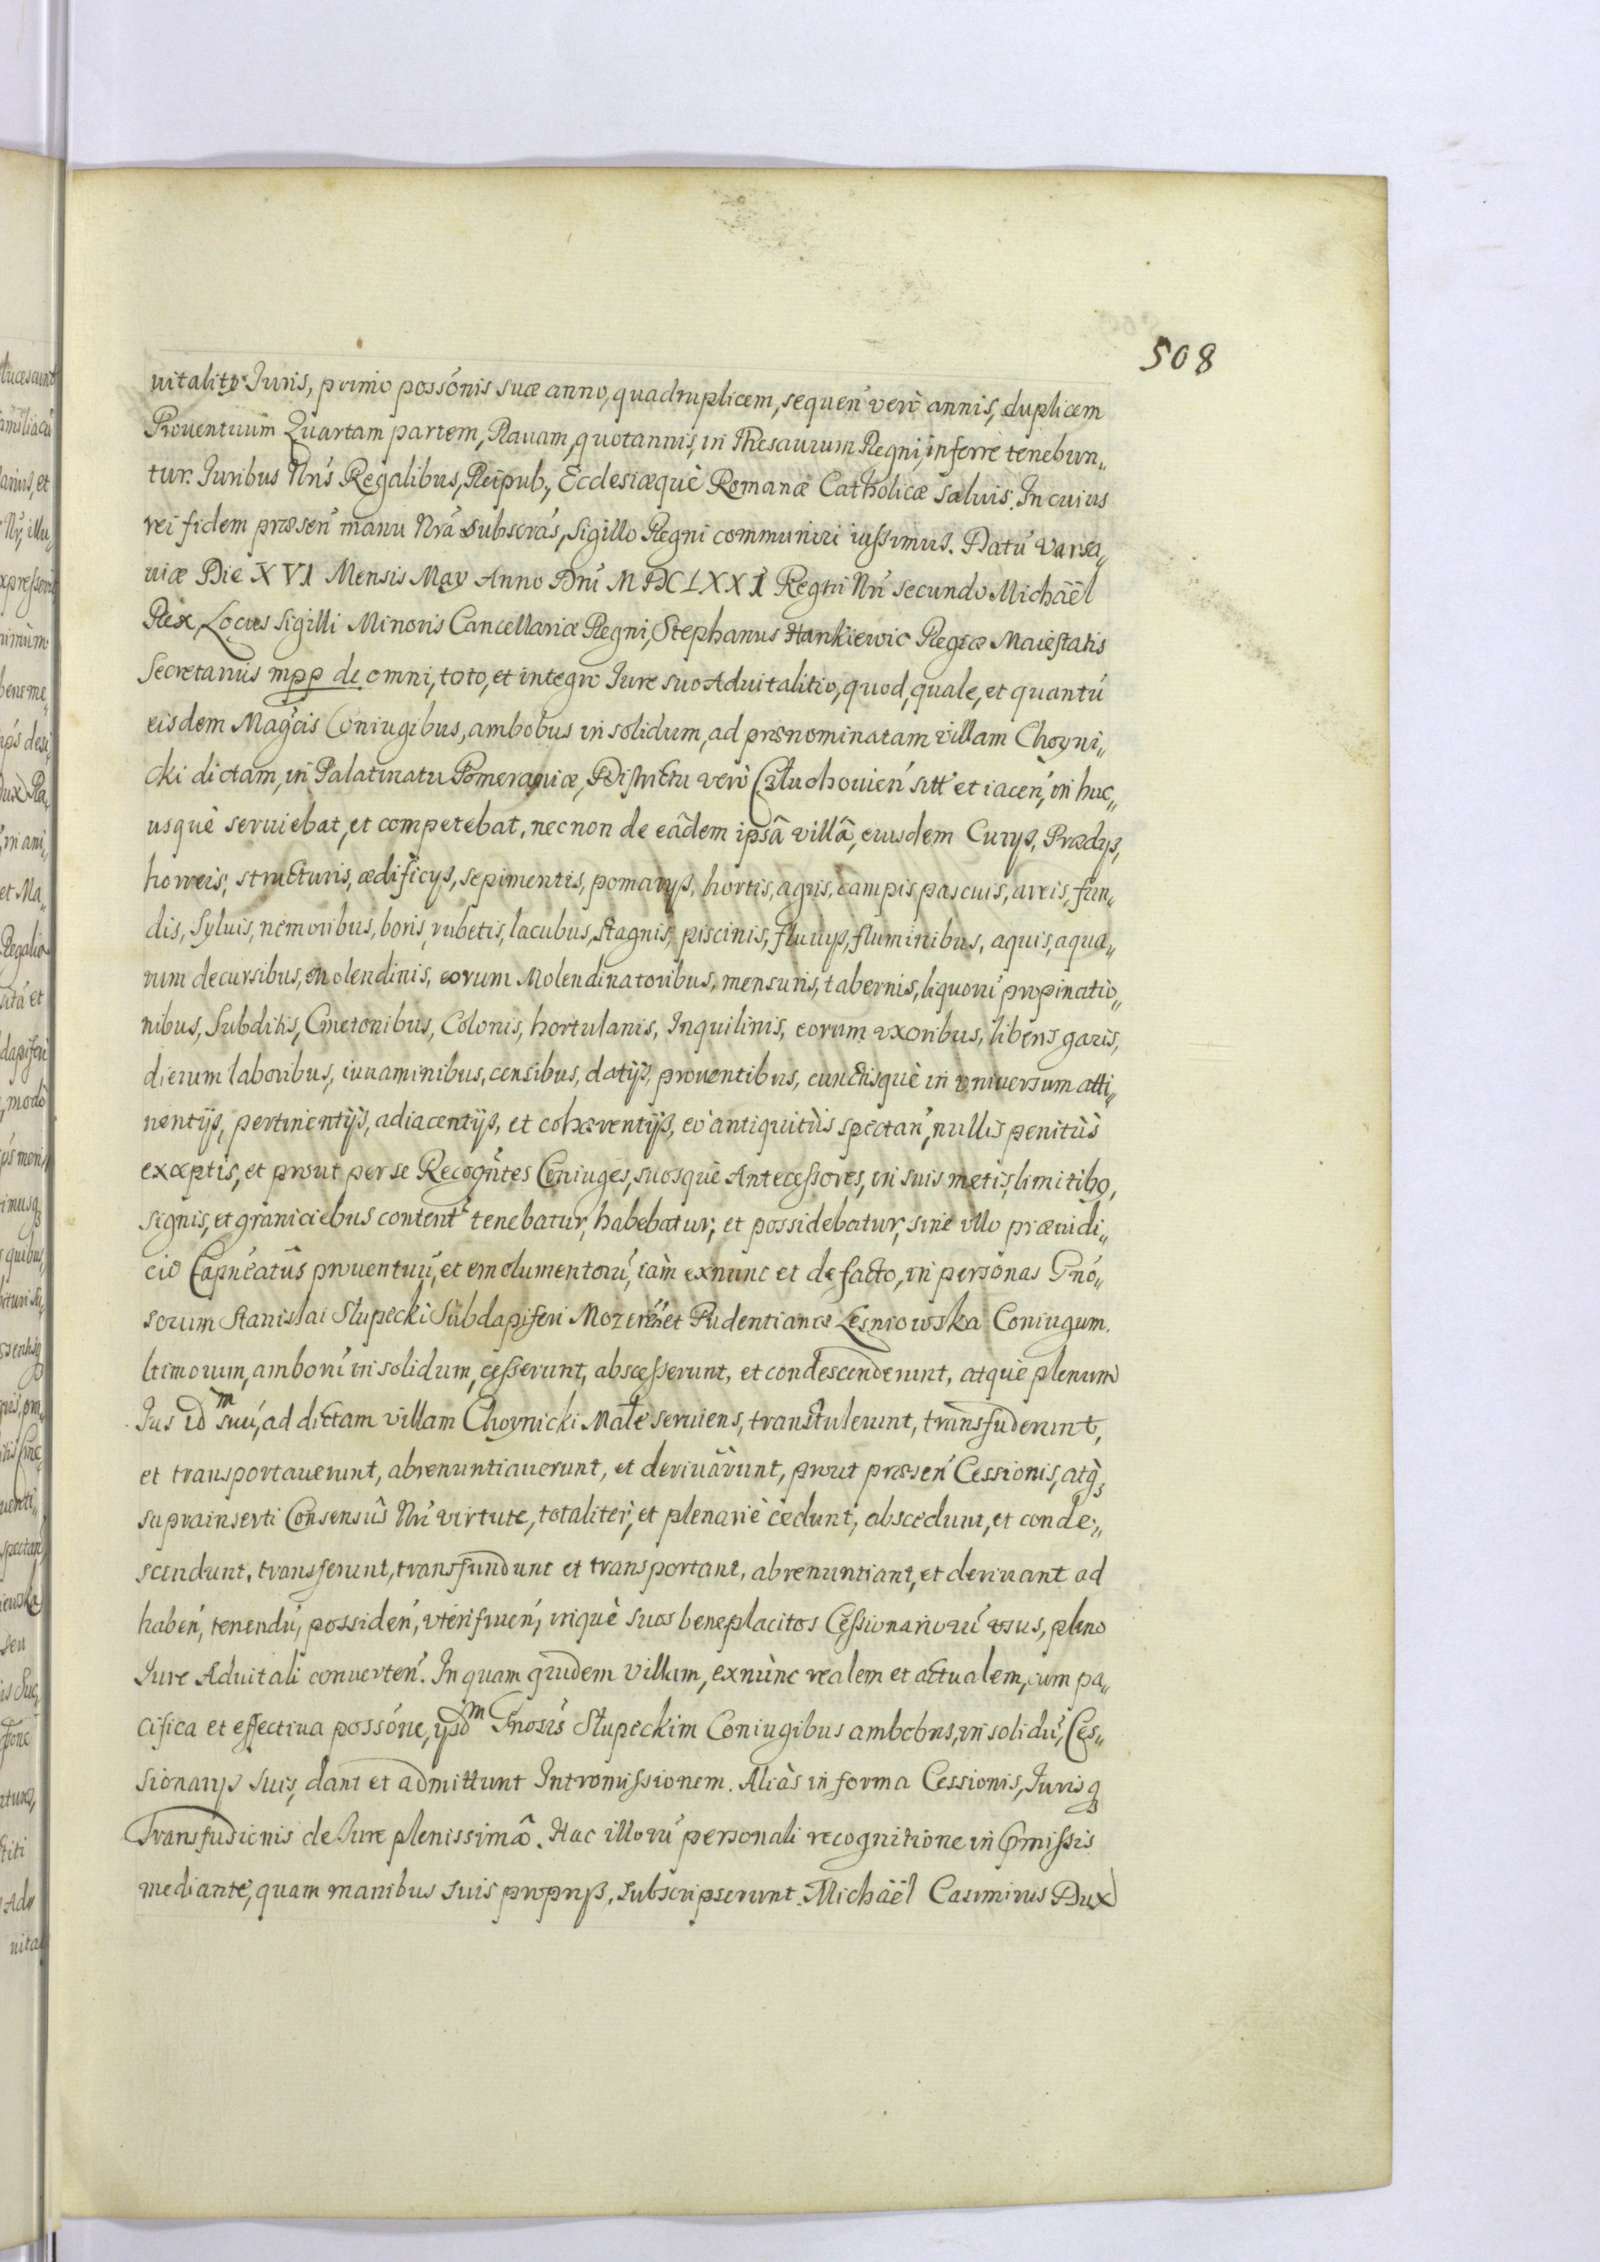 508
uitalitio Iuris, primo possónis suæ anno, quadruplicem, sequen̄ verò annis, duplicem
Prouentuum Quartam partem, Rauam, quotannis, in Thesaurum Regni, inferre tenebun„
tur. Iuribus Nr̄is Regalibus, Reipub, Ecclesiæquè Romanæ Catholicæ saluis. In cuius
rei fidem præsen̄ manu Nrā subscrās, Sigillo Regni communiri iussimus. Datū Varsa„
uiæ Die XVI Mensis May Anno Dnī MDCLXXI Regni Nrī secundo Michaël
Rex, Locus Sigilli Minoris Cancellariæ Regni, Stephanus Hankiewic Regiæ Maiestatis
Secretarius mpp de omni, toto, et integro Iure suo Aduitalitio, quod, quale, et quantū
eisdem Magcis Coniugibus, ambobus in solidum, ad prænominatam villam Choyni„
cki dictam, in Palatinatu Pomeraniæ, Districtu verò Człuchouien̄ sitt et iacen̄, in huc„
usquè seruiebat, et competebat, necnon de eâdem ipsâ villâ, eiusdem Curys, Prædys,
horreis, structuris, ædificys, sepimentis, pomarys, hortis, agris, campis, pascuis, areis, fun„
dis, Syluis, nemoribus, boris, rubetis, lacubus, stagnis, piscinis, fluuys, fluminibus, aquis, aqua„
rum decursibus, molendinis, eorum Molendinatoribus, mensuris, tabernis, liquorū propinatio„
nibus, Subditis, Cmetonibus, Colonis, hortulanis, Inquilinis, eorum vxoribus, liberis, gazis,
dierum laboribus, iuuaminibus, censibus, datijs, prouentibus, cunctisquè in vniuersum atti„
nentijs, pertinentijs, adiacentijs, et cohærentijs, eò antiquitùs spectan̄, nullis penitùs
exceptis, et prout per se Recogntes Coniuges, suosquè Antecessores, in suis metis, limitibꝫ,
signis, et graniciebus content tenebatur, habebatur, et possidebatur, sine vllo præiudi„
cio Capneatûs prouentuū, et emolumentorū, iàm exnunc et de facto, in personas Gnó„
sorum Stanislai Słupecki Subdapiferi Mozeren̄ et Pudentianæ Lesniowska Coniugum
ltimorum, amborū in solidum, cesserunt, abscesserunt, et condescenderunt, atquè plenum
Ius id m suū, ad dictam villam Choynicki Małe seruiens, transtulerunt, transfuderunt,
et transportauerunt, abrenuntiauerunt, et deriuârunt, prout præsen̄ Cessionis, atqꝫ
suprainserti Consensûs Nrī virtute, totaliter, et plenariè cedunt, abscedunt, et conde„
scendunt, transferunt, transfundunt et transportant, abrenuntiant, et deriuant ad
haben̄, tenendū, possiden̄, vtenfruen̄, inquè suos beneplacitos Cessionariorū vsus, pleno
Iure Aduitali conuerten̄. In quam quidem villam, exnunc realem et actualem, cum pa„
cifica et effectiua possóne, ijsd m Gnosis Słupeckim Coniugibus ambobus, in solidū, Ces„
sionarys suis, dant et admittunt Intromissionem. Aliàs in forma Cessionis, Iurisqꝫ
Transfusionis de Iure plenissimâ. Hac illorū personali recognitione in Pmissis
mediante, quam manibus suis proprijs, subscripserunt. Michaël Casimirus Dux